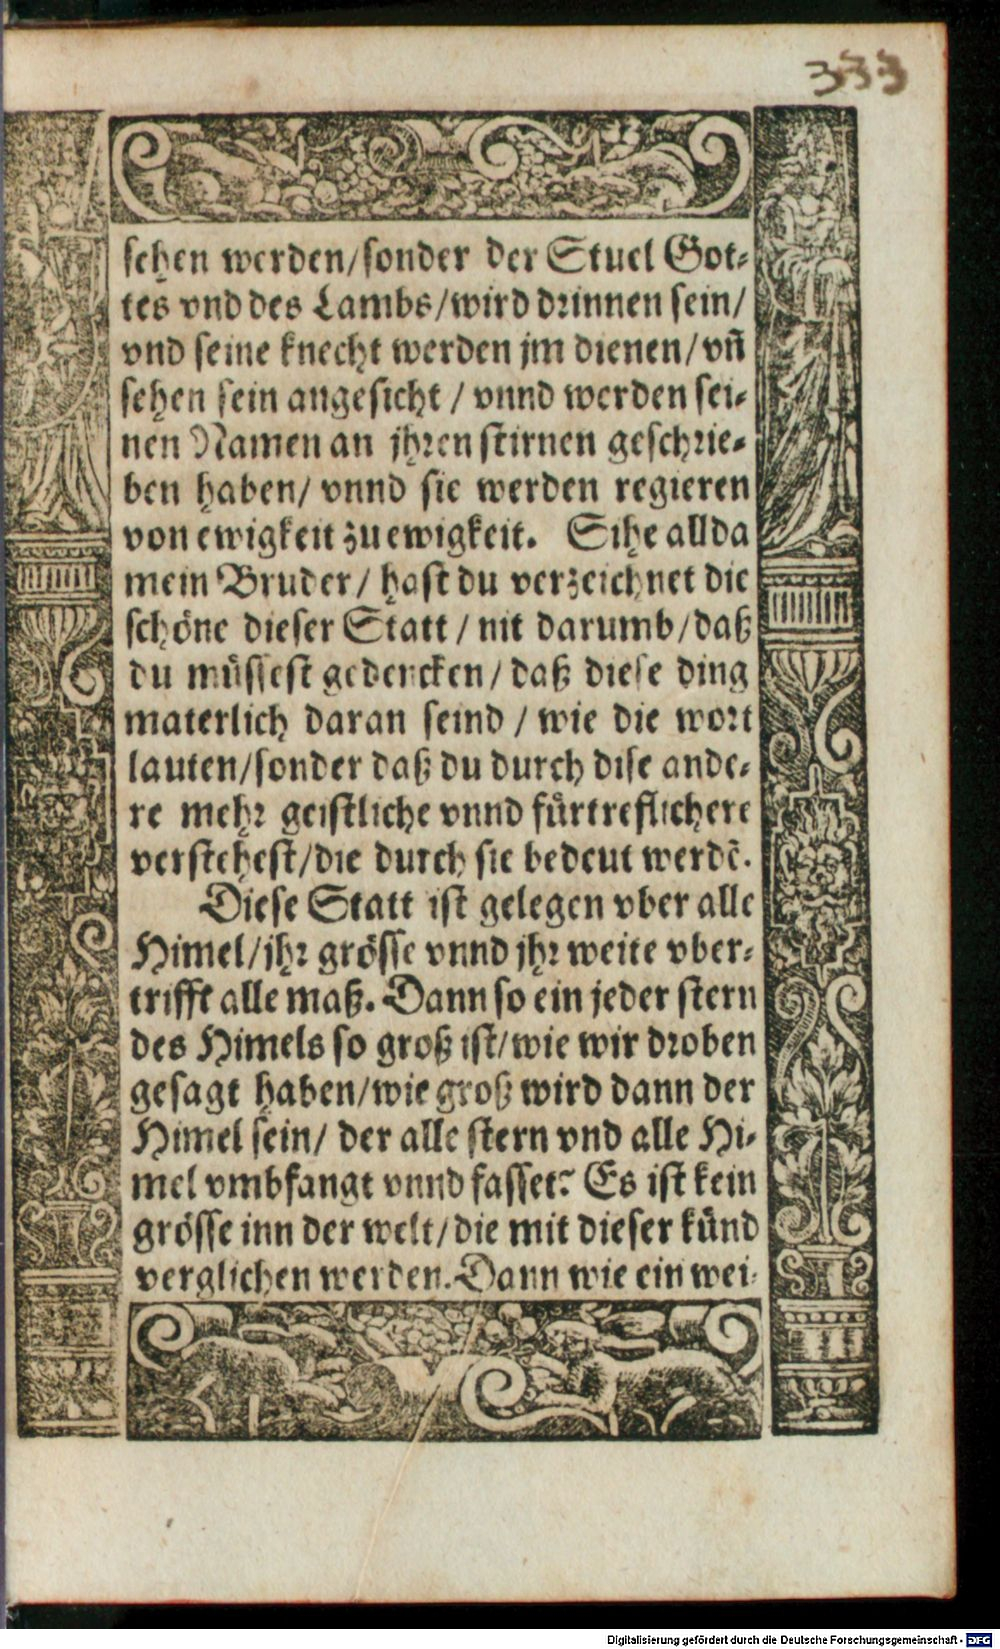 333
sehen werden/sonder der Stuel Got-
tes vnd des Lambs/wird drinnen sein/
vnd seine knecht werden jm dienen/vñ
sehen sein angesicht / vnnd werden sei-
nen Namen an jhren stirnen geschrie-
ben haben/ vnnd sie werden regieren
von ewigkeit zu ewigkeit. Sihe allda
mein Bruder/ hast du verzeichnet die
schöne dieser Statt / nit darumb/daß
du müssest gedencken/ daß diese ding
materlich daran seind / wie die wort
lauten/sonder daß du durch dise ande-
re mehr geistliche vnnd fürtreflichere
verstehest/die durch sie bedeut werdẽ.
Diese Statt ist gelegen vber alle
Himel/jhr grösse vnnd jhr weite vber-
trifft alle maß. Dann so ein jeder stern
des Himels so groß ist/wie wir droben
gesagt haben/wie groß wird dann der
Himel sein/ der alle stern vnd alle Hi-
mel vmbfangt vnnd fasset? Es ist kein
grösse inn der welt/die mit dieser künd
verglichen werden. Dann wie ein wei-
Digitalisierung gefördert durch die Deutsche Forschungsgemeinschaft - DFG